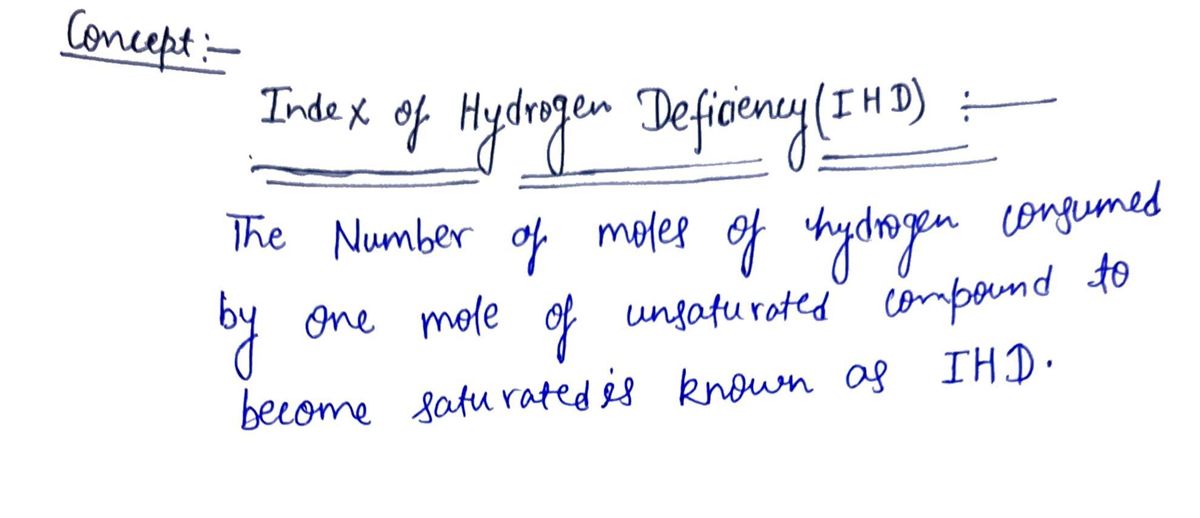 Concept :-
Index of Hydrogen Deficiency (IHD) :-
The Number of moles of hydrogen consumed
by one mole of unsaturated compound to
become saturated is known as IHD.